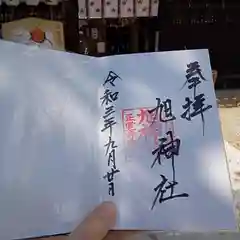 奉拝
旭神社
令和二年九月廿日